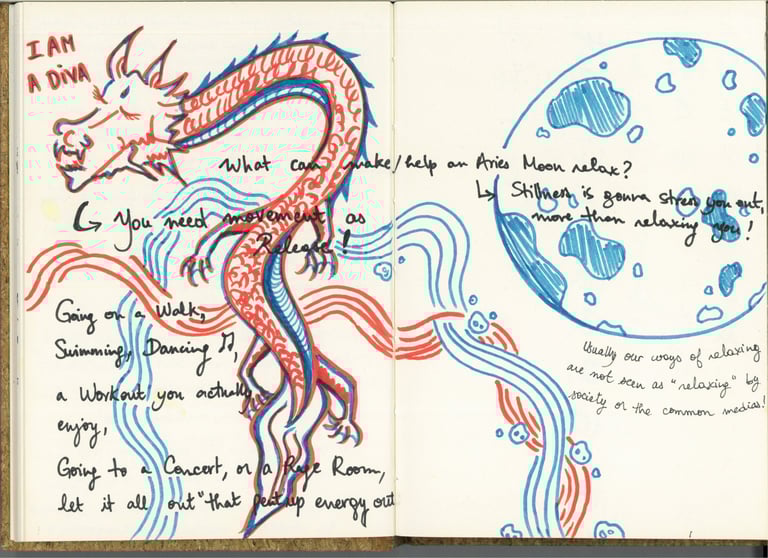 I AM
A DiVA
What can make/help an Aries Moon relax?
↳ Stillness is gonna stress you out,
more than relaxing you!
↳ You need movement as
Release!
Going on a Walk,
Swimming, Dancing ♫,
a Workout you actually
enjoy,
Going to a Concert, or a Rage Room,
let it all out "that pent up energy out
Usually our ways of relaxing
are not seen as "relaxing" by
society or the common medias!